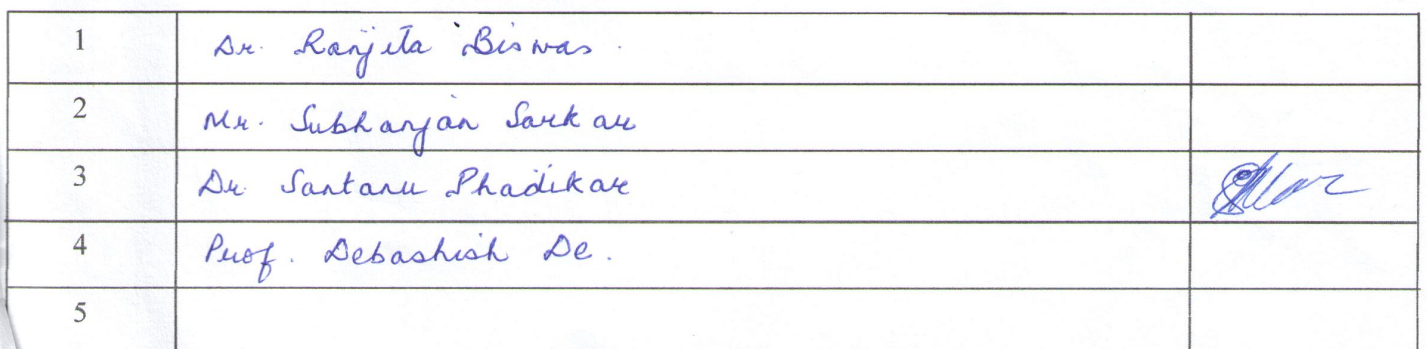 1 Dr. Ranjita Biswas.
2 Mr. Subhanjan Sarkar
3 Dr Santanu Phadikar
4 Prof. Debashish De.
5